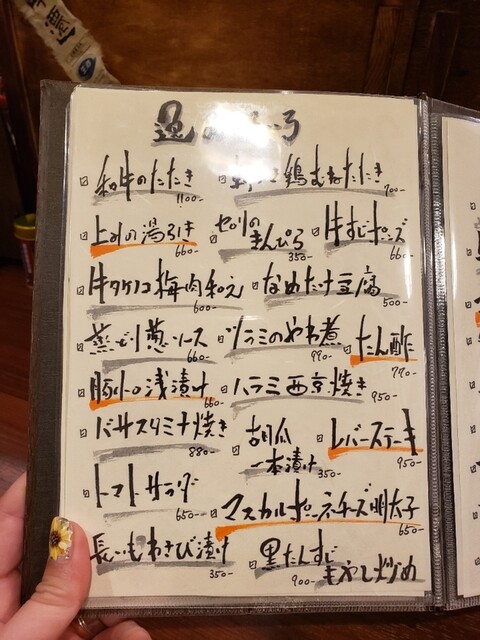 和牛のたたき 1100-
鶏むねたたき 700-
上みの湯引き 660-
セロリのきんぴら 350-
牛すじポンズ 660-
牛タケノコ梅肉和え 600-
なめたけ豆腐 500-
蒸し 葱ソース 660-
ツラミのやわ煮 990-
たん酢 770-
豚トロ浅漬け 660-
ハラミ西京焼き 950-
バサスタミナ焼き 880-
胡瓜
一本漬け 350-
レバーステーキ 950-
トマトサラダ 650-
マスカルポーネチーズ明太子 650-
長いもわさび漬け 350-
黒たんすじ
もやし炒め 900-